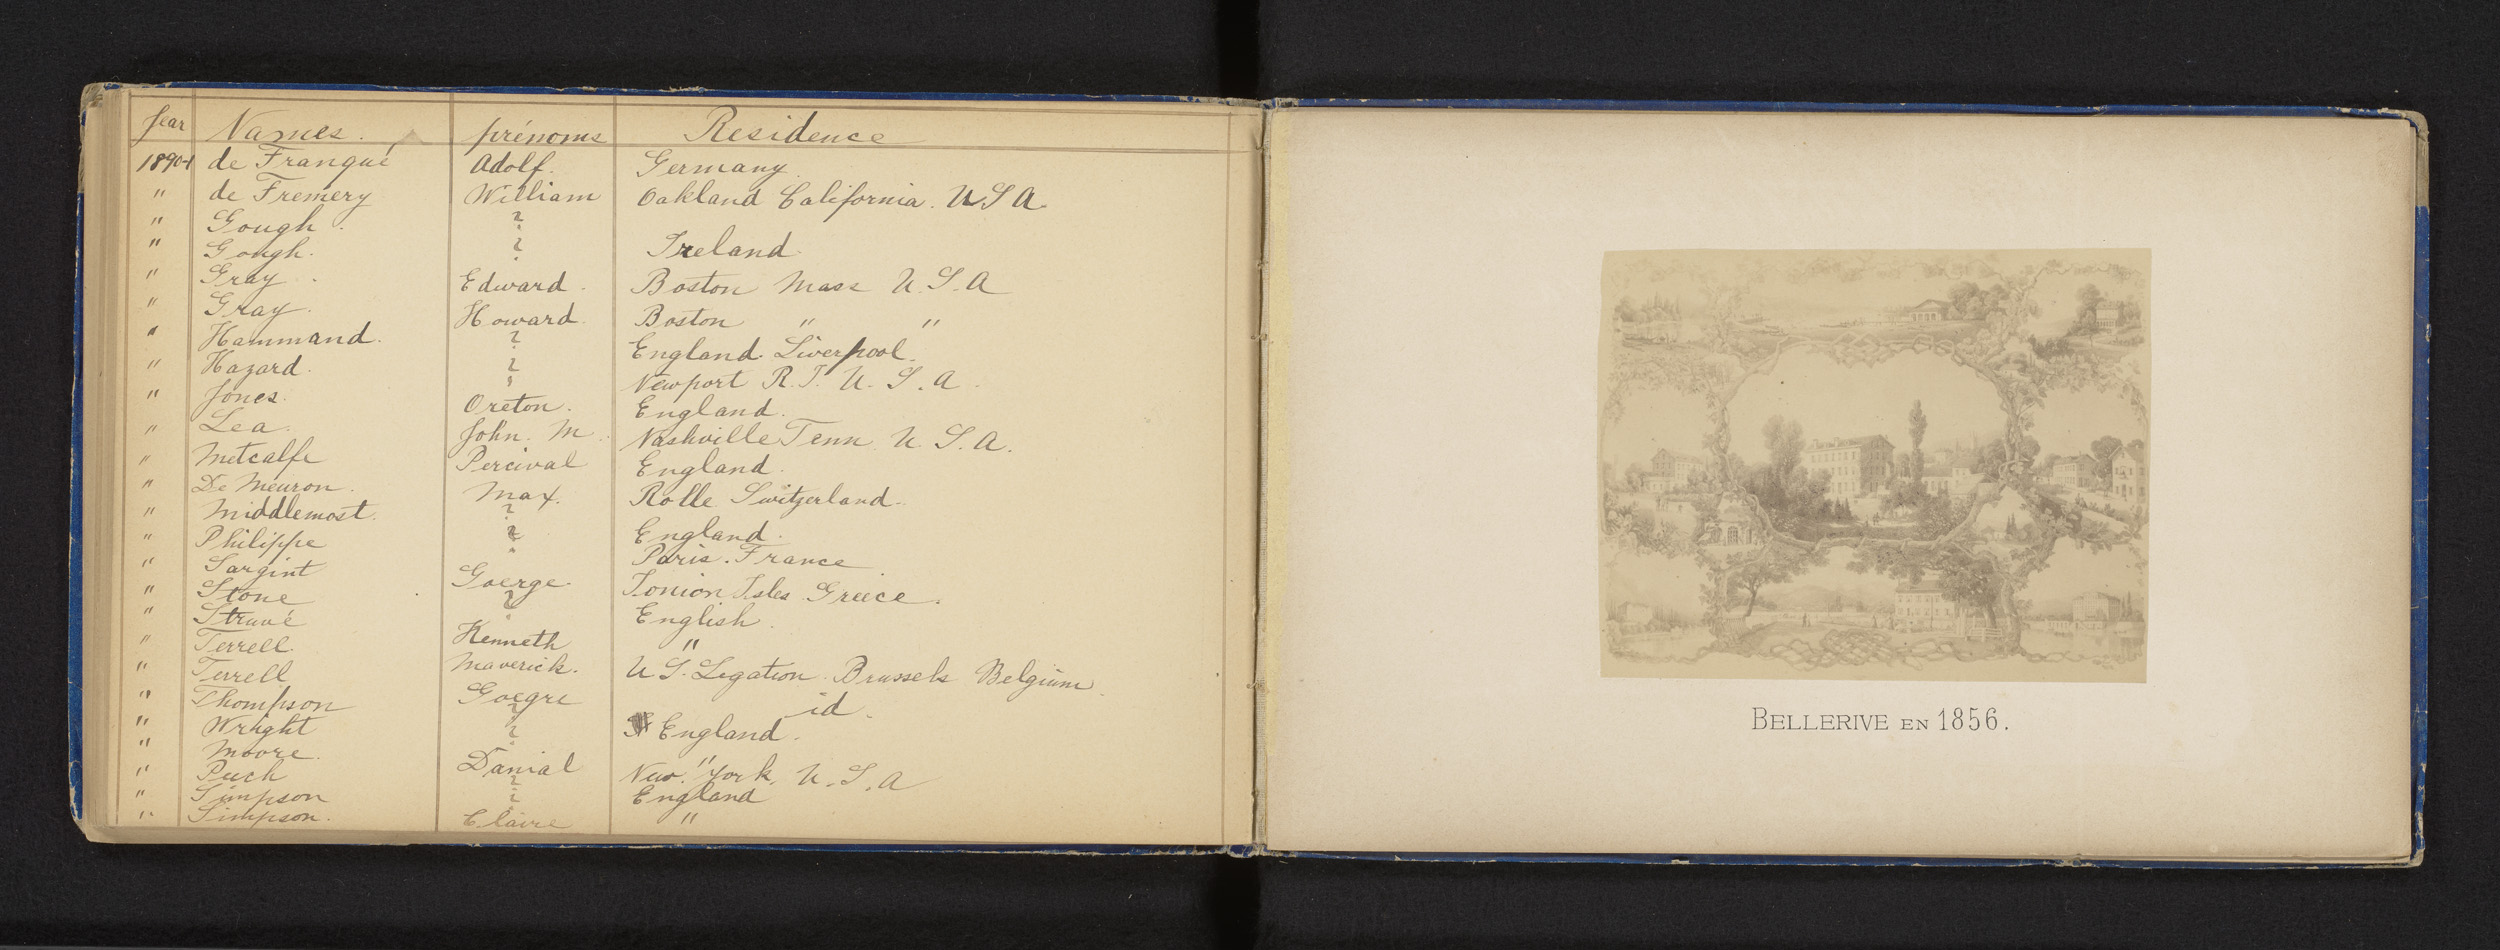 Year Names. prénoms Residence
1890-1 de Franqué Adolf. Germany.
" de Fremery William Oakland California. U S A.
" Gough. ?
" Gough. ? Ireland.
" Gray. Edward. Boston Mass U. S. A
" Gray. Howard. Boston " "
" Hammand. ? England. Liverpool.
" Hazard. ? Newport R. I. U. S. A.
" Jones. Oreton. England.
" Lea. John. M. Nashville Tenn U. S. A.
" Metcalfe Percival England.
" De Meuron. Max. Rolle Switzerland.
" Middlemost. ? England.
" Philippe ? Paris. France
" Sargint Goerge. Ionion Isles Greece.
" Stone ? English.
" Struvé Kenneth "
" Terrell. Maverick. U S. Legation. Brussels Belgium.
" Terrell Goegre id.
" Thompson ? England.
" Wright ? "
" Moore. Danial New. York. U. S. A
" Puch ? England
" Simpson ?
" Simpson. Claire "
BELLERIVE EN 1856.